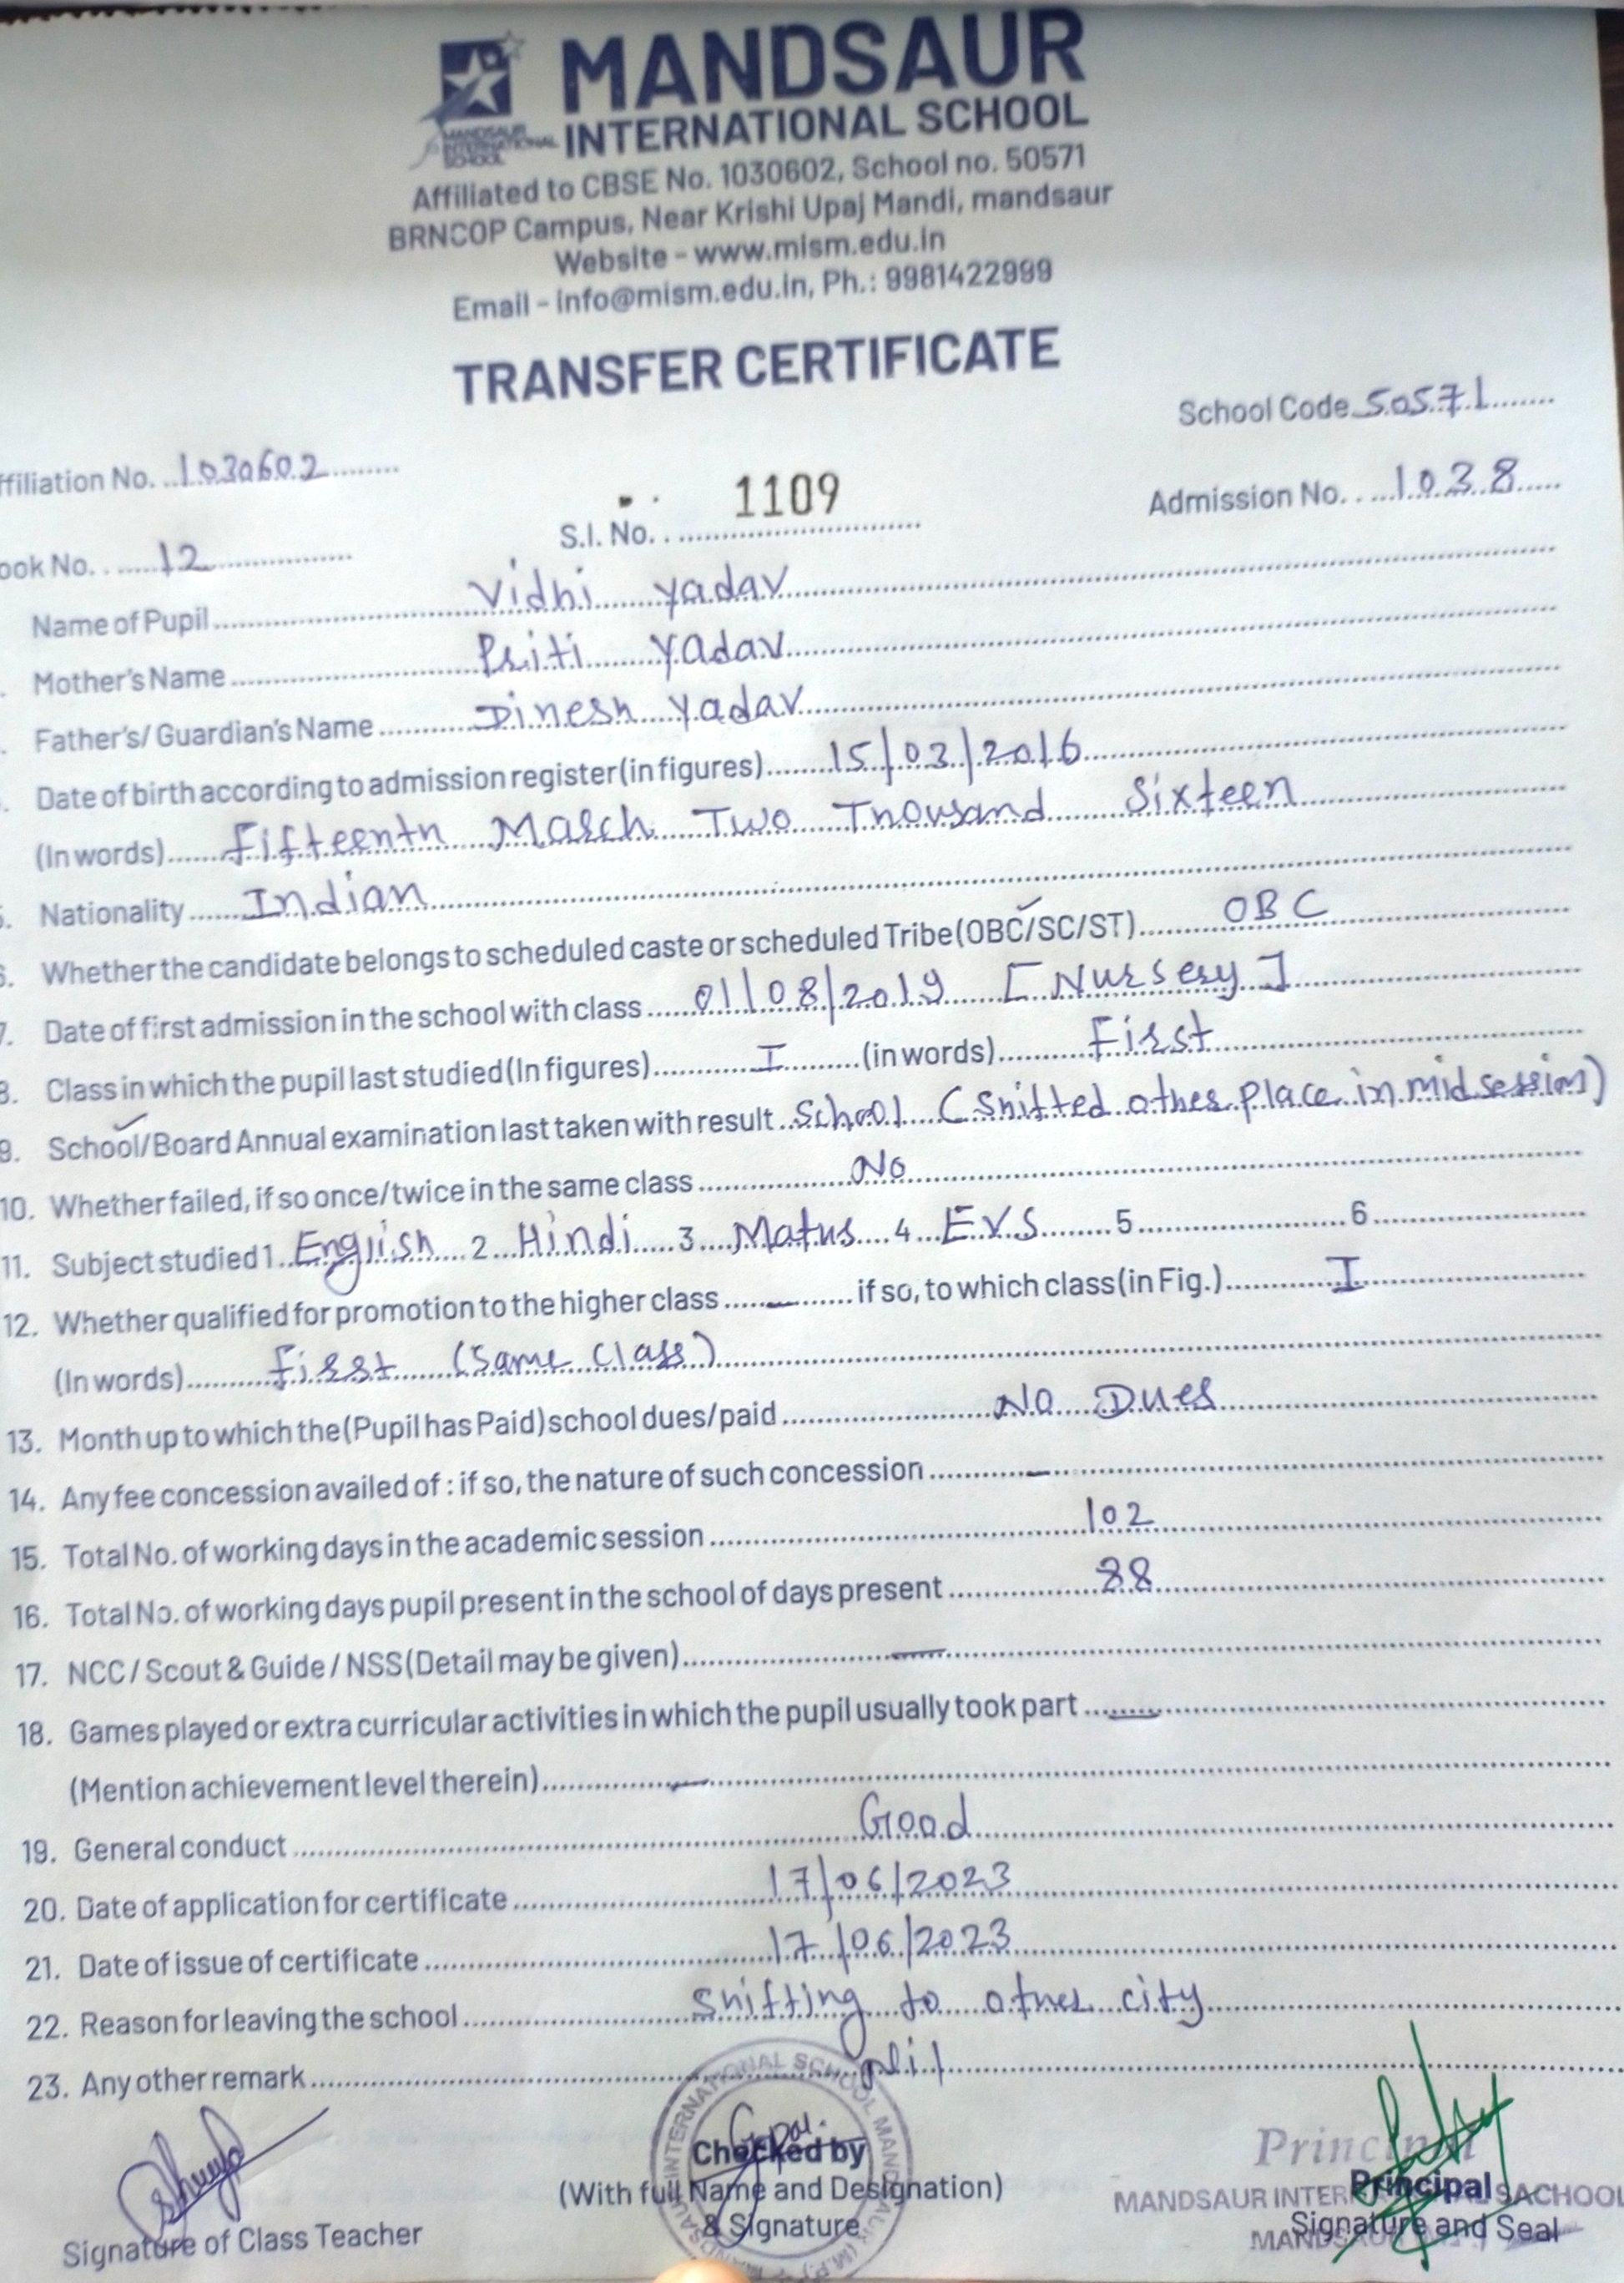 MANDSAUR
INTERNATIONAL SCHOOL
MANDSAUR
INTERNATIONAL
SCHOOL
Affiliated to CBSE No. 1030602, School no. 50571
BRNCOP Campus, Near Krishi Upaj Mandi, mandsaur
Website - www.mism.edu.in
Email - info@mism.edu.in, Ph.: 9981422999
TRANSFER CERTIFICATE
School Code 50571
ffiliation No. 1030602
S.I. No. 1109
Admission No. 1038
ook No. 12
Name of Pupil Vidhi Yadav
Mother's Name Priti Yadav
Father's/ Guardian's Name Dinesh Yadav
Date of birth according to admission register (in figures) 15/03/2016
(In words) Fifteenth March Two Thousand Sixteen
5. Nationality Indian
6. Whether the candidate belongs to scheduled caste or scheduled Tribe (OBC/SC/ST) OBC
7. Date of first admission in the school with class 01/08/2019 [Nursery]
8. Class in which the pupil last studied (In figures) I (in words) First
9. School/Board Annual examination last taken with result School (Shifted other place in mid session)
10. Whether failed, if so once/twice in the same class No
11. Subject studied 1 English 2 Hindi 3 Maths 4 EVS 5 6
12. Whether qualified for promotion to the higher class — if so, to which class (in Fig.) I
(In words) First (Same Class)
13. Month up to which the (Pupil has Paid) school dues/paid No Dues
14. Any fee concession availed of : if so, the nature of such concession —
15. Total No. of working days in the academic session 102
16. Total No. of working days pupil present in the school of days present 88
17. NCC / Scout & Guide / NSS (Detail may be given) —
18. Games played or extra curricular activities in which the pupil usually took part —
(Mention achievement level therein) —
19. General conduct Good
20. Date of application for certificate 17/06/2023
21. Date of issue of certificate 17/06/2023
22. Reason for leaving the school Shifting to other city
23. Any other remark Nil
Checked by
(With full Name and Designation)
& Signature
Signature of Class Teacher
Principal
Principal
MANDSAUR INTERNATIONAL SACHOOL
Signature and Seal
MANDSAUR
INTERNATIONAL SCHOOL MANDSAUR (M.P.)